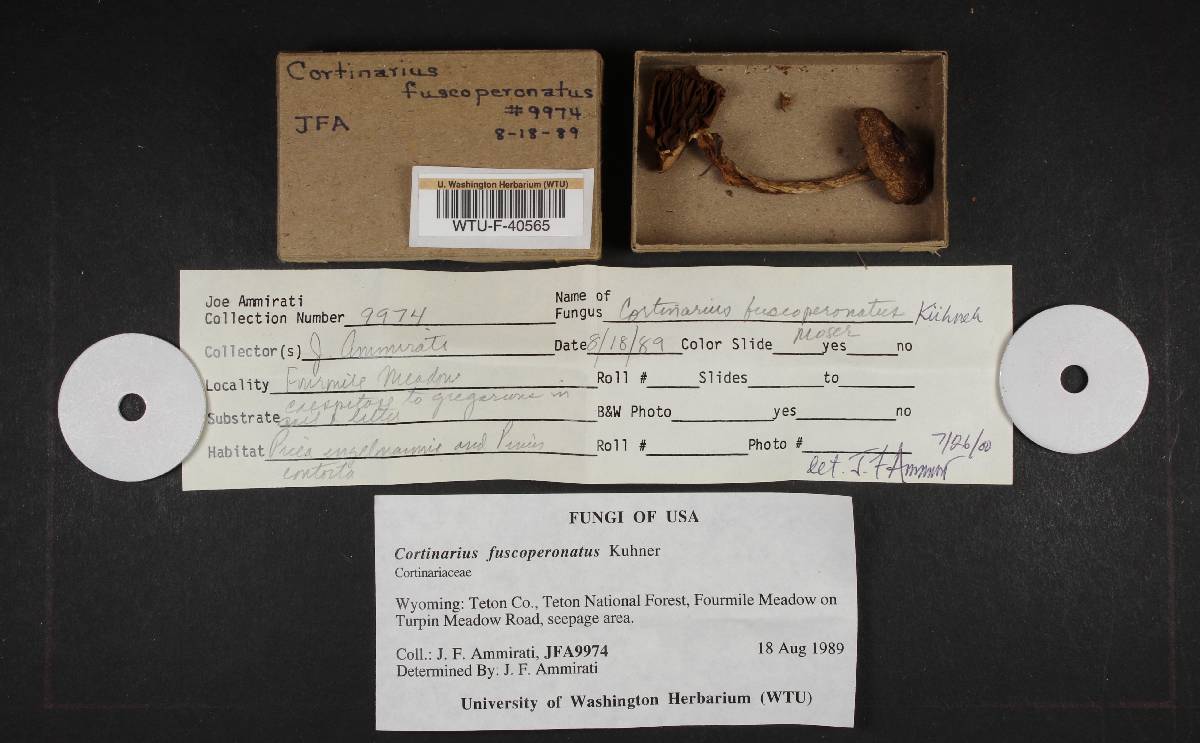 Cortinarius
fuscoperonatus
#9974
JFA
8-18-89
U. Washington Herbarium (WTU)
WTU-F-40565
Joe Ammirati
Collection Number 9974
Name of
Fungus Cortinarius fuscoperonatus Kühner
Moser
Collector(s) J. Ammirati
Date 8/18/89 Color Slide yes no
Locality Fourmile Meadow
Roll # Slides to
caespitose to gregarious in
Substrate soil & litter
B&W Photo yes no
Habitat Picea engelmannii and Pinus
contorta
Roll # Photo #
7/26/00
det. J. F. Ammirati
FUNGI OF USA
Cortinarius fuscoperonatus Kuhner
Cortinariaceae
Wyoming: Teton Co., Teton National Forest, Fourmile Meadow on
Turpin Meadow Road, seepage area.
Coll.: J. F. Ammirati, JFA9974 18 Aug 1989
Determined By: J. F. Ammirati
University of Washington Herbarium (WTU)